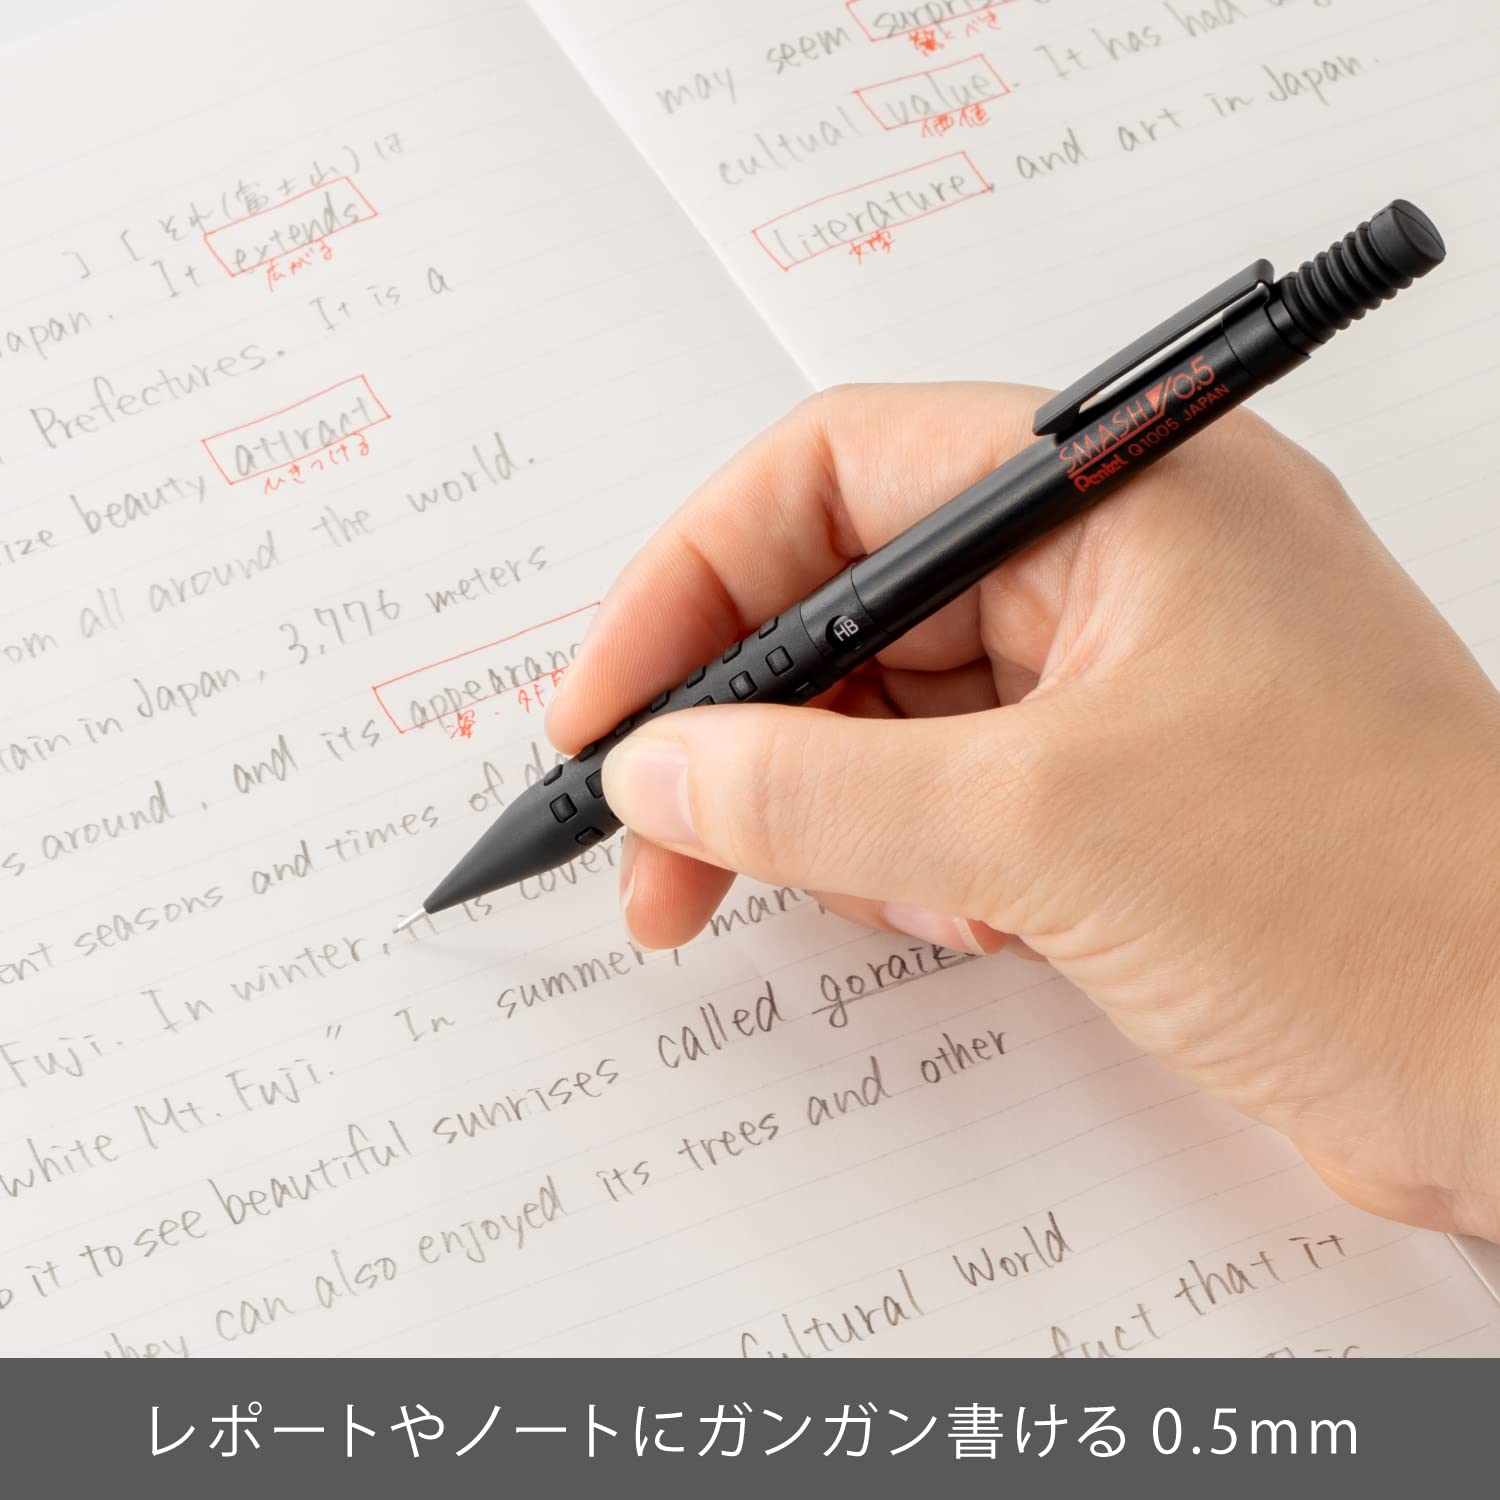 ] [それ(富士山)は
Japan. It extends
広がる
Prefectures. It is a
ize beauty attract
ひきつける
om all around the world.
tain in Japan, 3,776 meters
s around, and its appearanc
姿・外見
ent seasons and times of da
Fuji. In winter, it is cover
white Mt. Fuji." In summer, man
o it to see beautiful sunrises called goraik
they can also enjoyed its trees and other
may seem surpris
驚くべき
cultual value. It has had
価値
literature, and art in Japan.
文学
SMASH 0.5
Pentel Q1005 JAPAN
HB
Cultural World
fact that it
This
レポートやノートにガンガン書ける 0.5mm